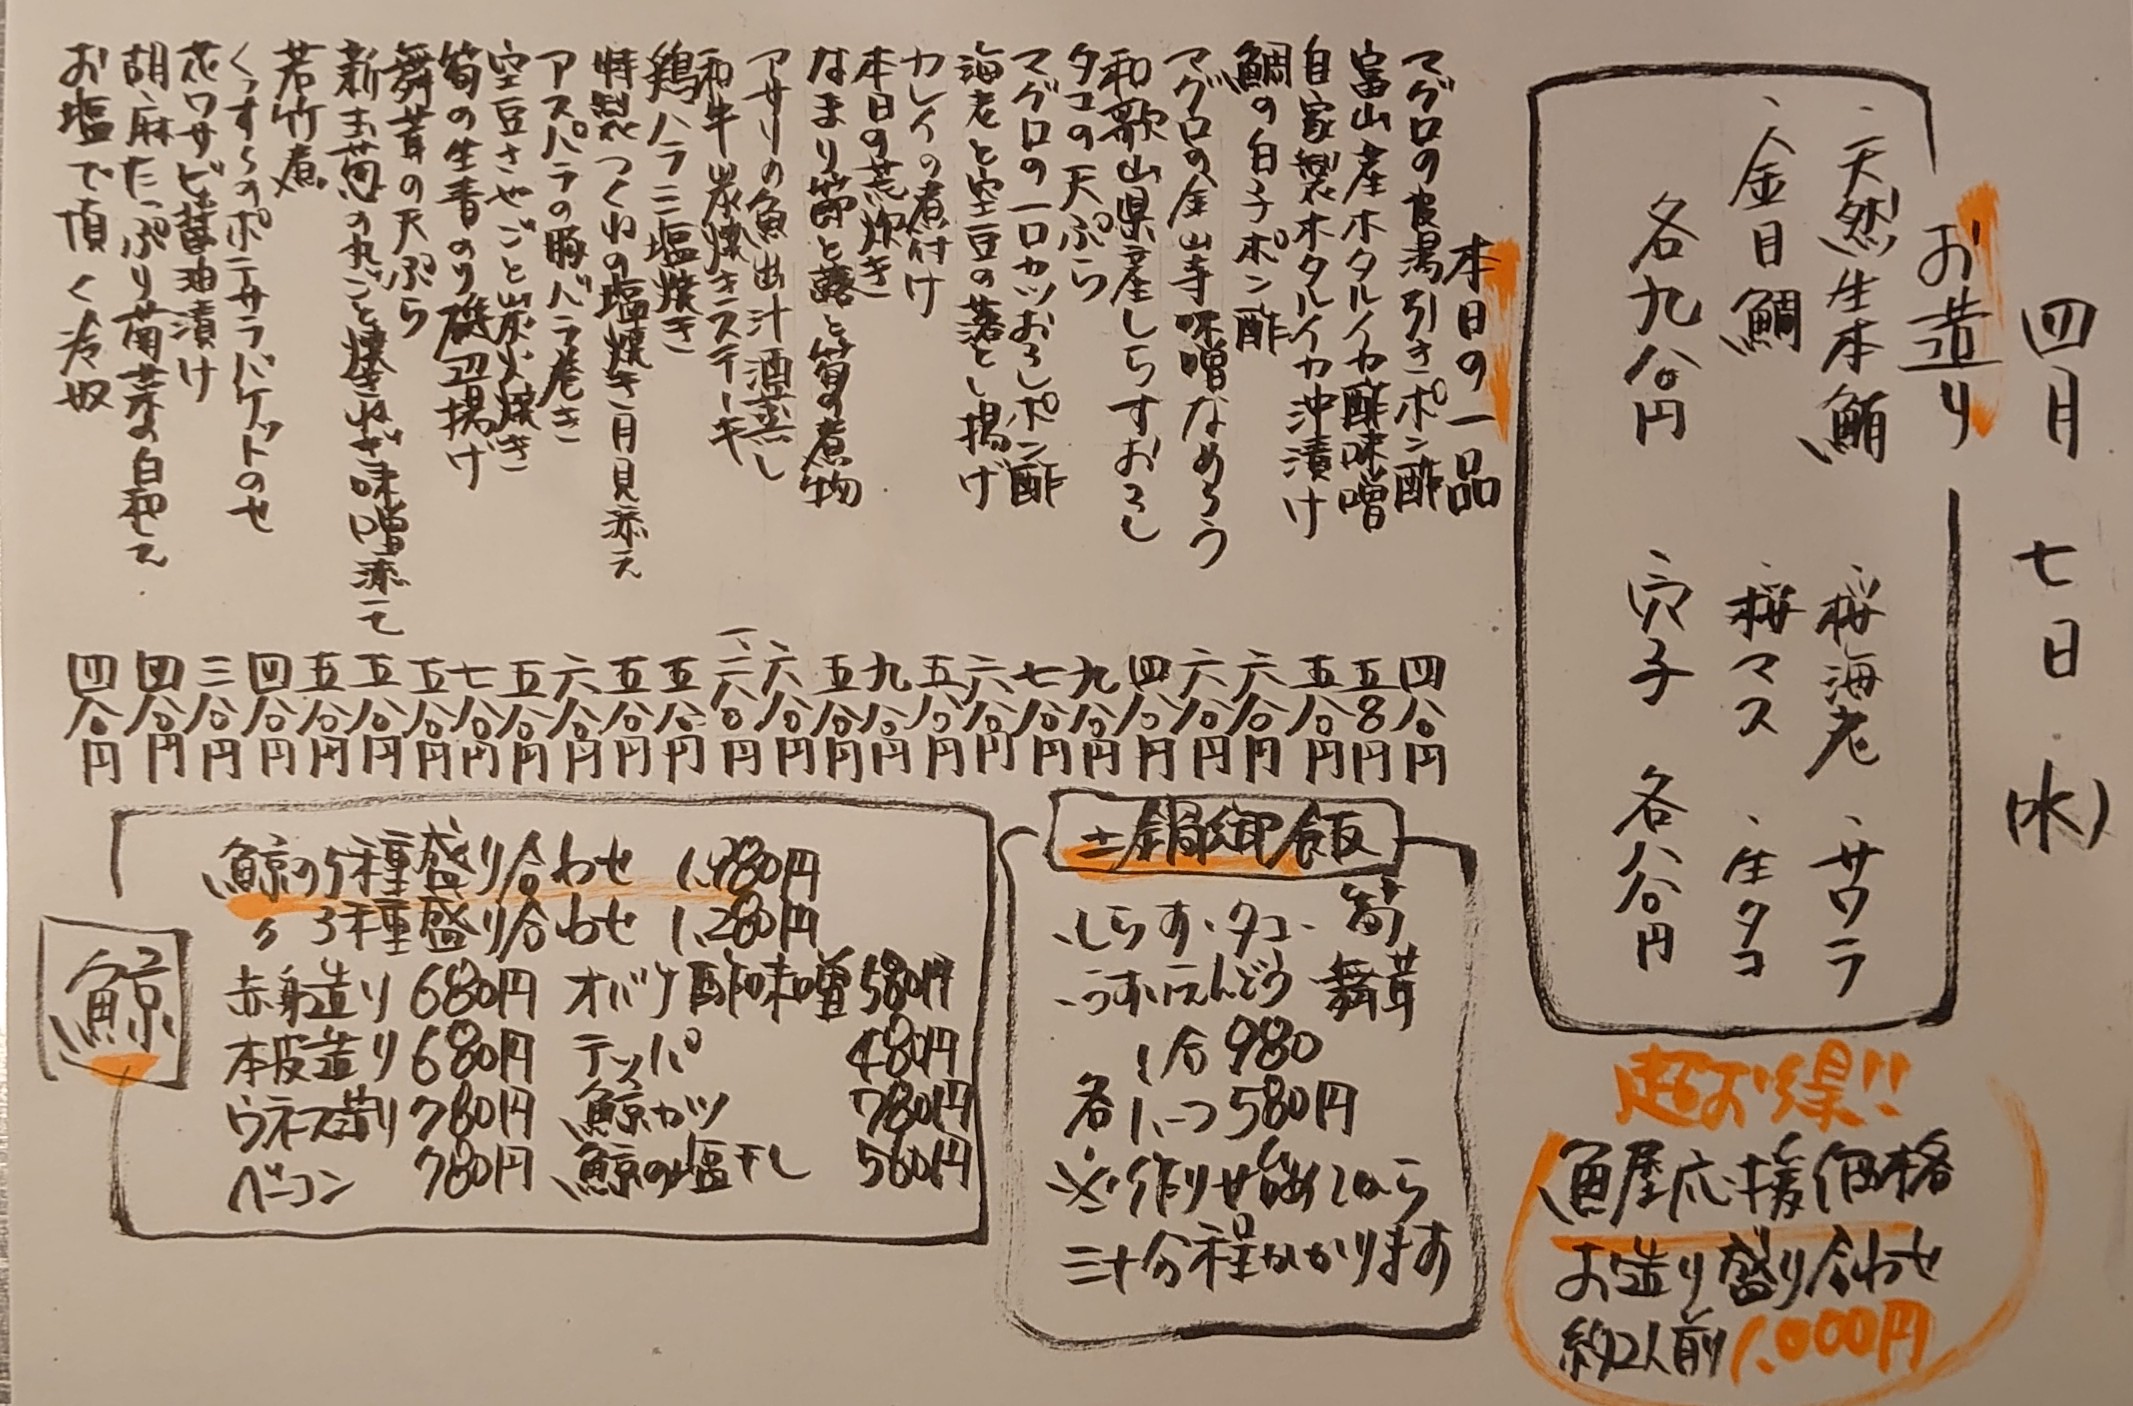 四月七日(水)
お造り
、天然生本鮪 、桜海老 、サワラ
、金目鯛 、桜マス 、生タコ
各九八〇円 穴子 各八八〇円
超お得!!
魚屋応援価格
お造り盛り合わせ
約2人前1,000円
本日の一品
マグロの湯引きポン酢 四八〇円
富山産ホタルイカ酢味噌 五80円
自家製ホタルイカ沖漬け 五八〇円
鯛の白子ポン酢 六八〇円
マグロの金山寺味噌なめろう 六八〇円
和歌山県産しらすおろし 四八〇円
タコの天ぷら 九八〇円
マグロの一口カツおろしポン酢 七八〇円
海老と空豆の落とし揚げ 六八〇円
カレイの煮付け 五八〇円
本日の荒炊き 九八〇円
なまり節と蕗と筍の煮物 五八〇円
アサリの魚出汁酒蒸し 六八〇円
和牛炭焼きステーキ 一二八〇円
鶏ハラミ塩焼き 五八〇円
特製つくねの塩焼き月見添え 五八〇円
アスパラの豚バラ巻き 六八〇円
空豆さやごと炭火焼き 五八〇円
筍の生青のり磯辺揚げ 七八〇円
舞茸の天ぷら 五八〇円
新玉葱の丸ごと焼きねぎ味噌添て 五八〇円
若竹煮 五八〇円
くんすらのポテサラバケットのせ 四八〇円
花ワサビ醤油漬け 三八〇円
胡麻たっぷり菊菜の白和え 四八〇円
お塩で頂く冷奴 四八〇円
土鍋御飯
、しらす、タコ、筍
、うすいえんどう 舞茸
1合980
各1、二つ580円
※作りせ始めてから
三十分程かかります
鯨
鯨の5種盛り合わせ 1,980円
〃 3種盛り合わせ 1,280円
赤身造り 680円 オバケ酢味噌 580円
本皮造り 680円 テッパ 480円
ウネス造り 780円 鯨カツ 780円
ベーコン 780円 鯨の塩干し 560円